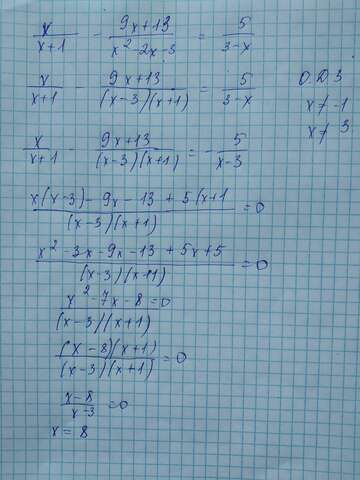 x/(x+1) - (9x+13)/(x² - 2x - 3) = 5/(3-x)
x/(x+1) - (9x+13)/((x-3)(x+1)) = 5/(3-x) О.D.З
x ≠ -1
x/(x+1) - (9x+13)/((x-3)(x+1)) = - 5/(x-3) x ≠ 3
(x(x-3) - 9x - 13 + 5(x+1)/((x-3)(x+1)) = 0
(x² - 3x - 9x - 13 + 5x + 5)/((x-3)(x+1)) = 0
(x² - 7x - 8 = 0)/((x-3)(x+1))
((x-8)(x+1))/((x-3)(x+1)) = 0
(x-8)/(x-3) = 0
x = 8